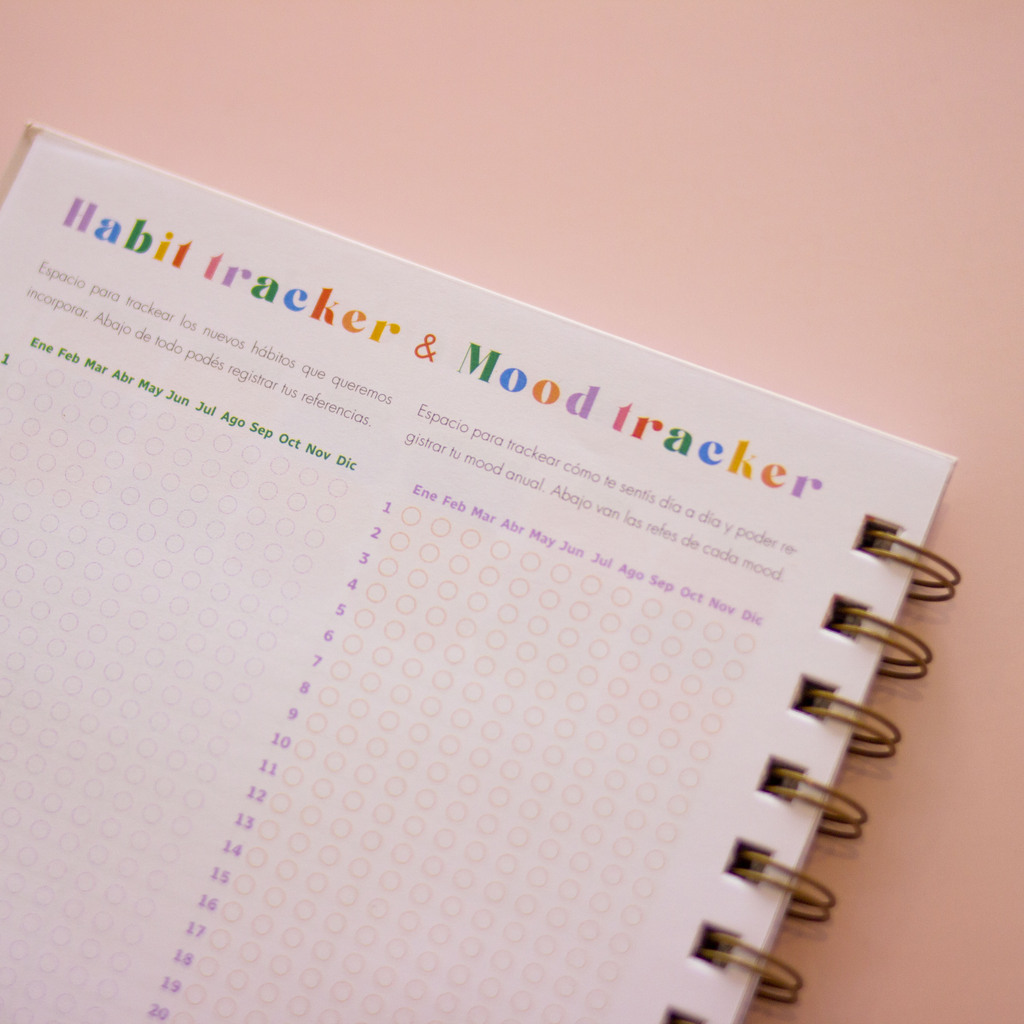 Habit tracker & Mood tracker
Espacio para trackear los nuevos hábitos que queremos
incorporar. Abajo de todo podés registrar tus referencias.
Ene Feb Mar Abr May Jun Jul Ago Sep Oct Nov Dic
1
Espacio para trackear cómo te sentís día a día y poder re-
gistrar tu mood anual. Abajo van las refes de cada mood.
Ene Feb Mar Abr May Jun Jul Ago Sep Oct Nov Dic
1
2
3
4
5
6
7
8
9
10
11
12
13
14
15
16
17
18
19
20